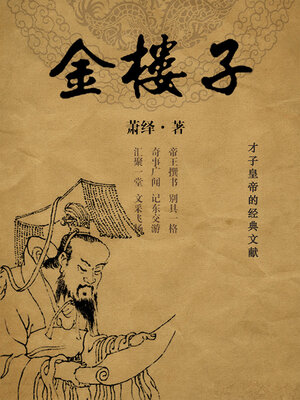 金樓子
萧绎·著
帝王撰书 别具一格
奇事广闻 记东交游
汇聚一堂 文采飞扬
才子皇帝的经典文献